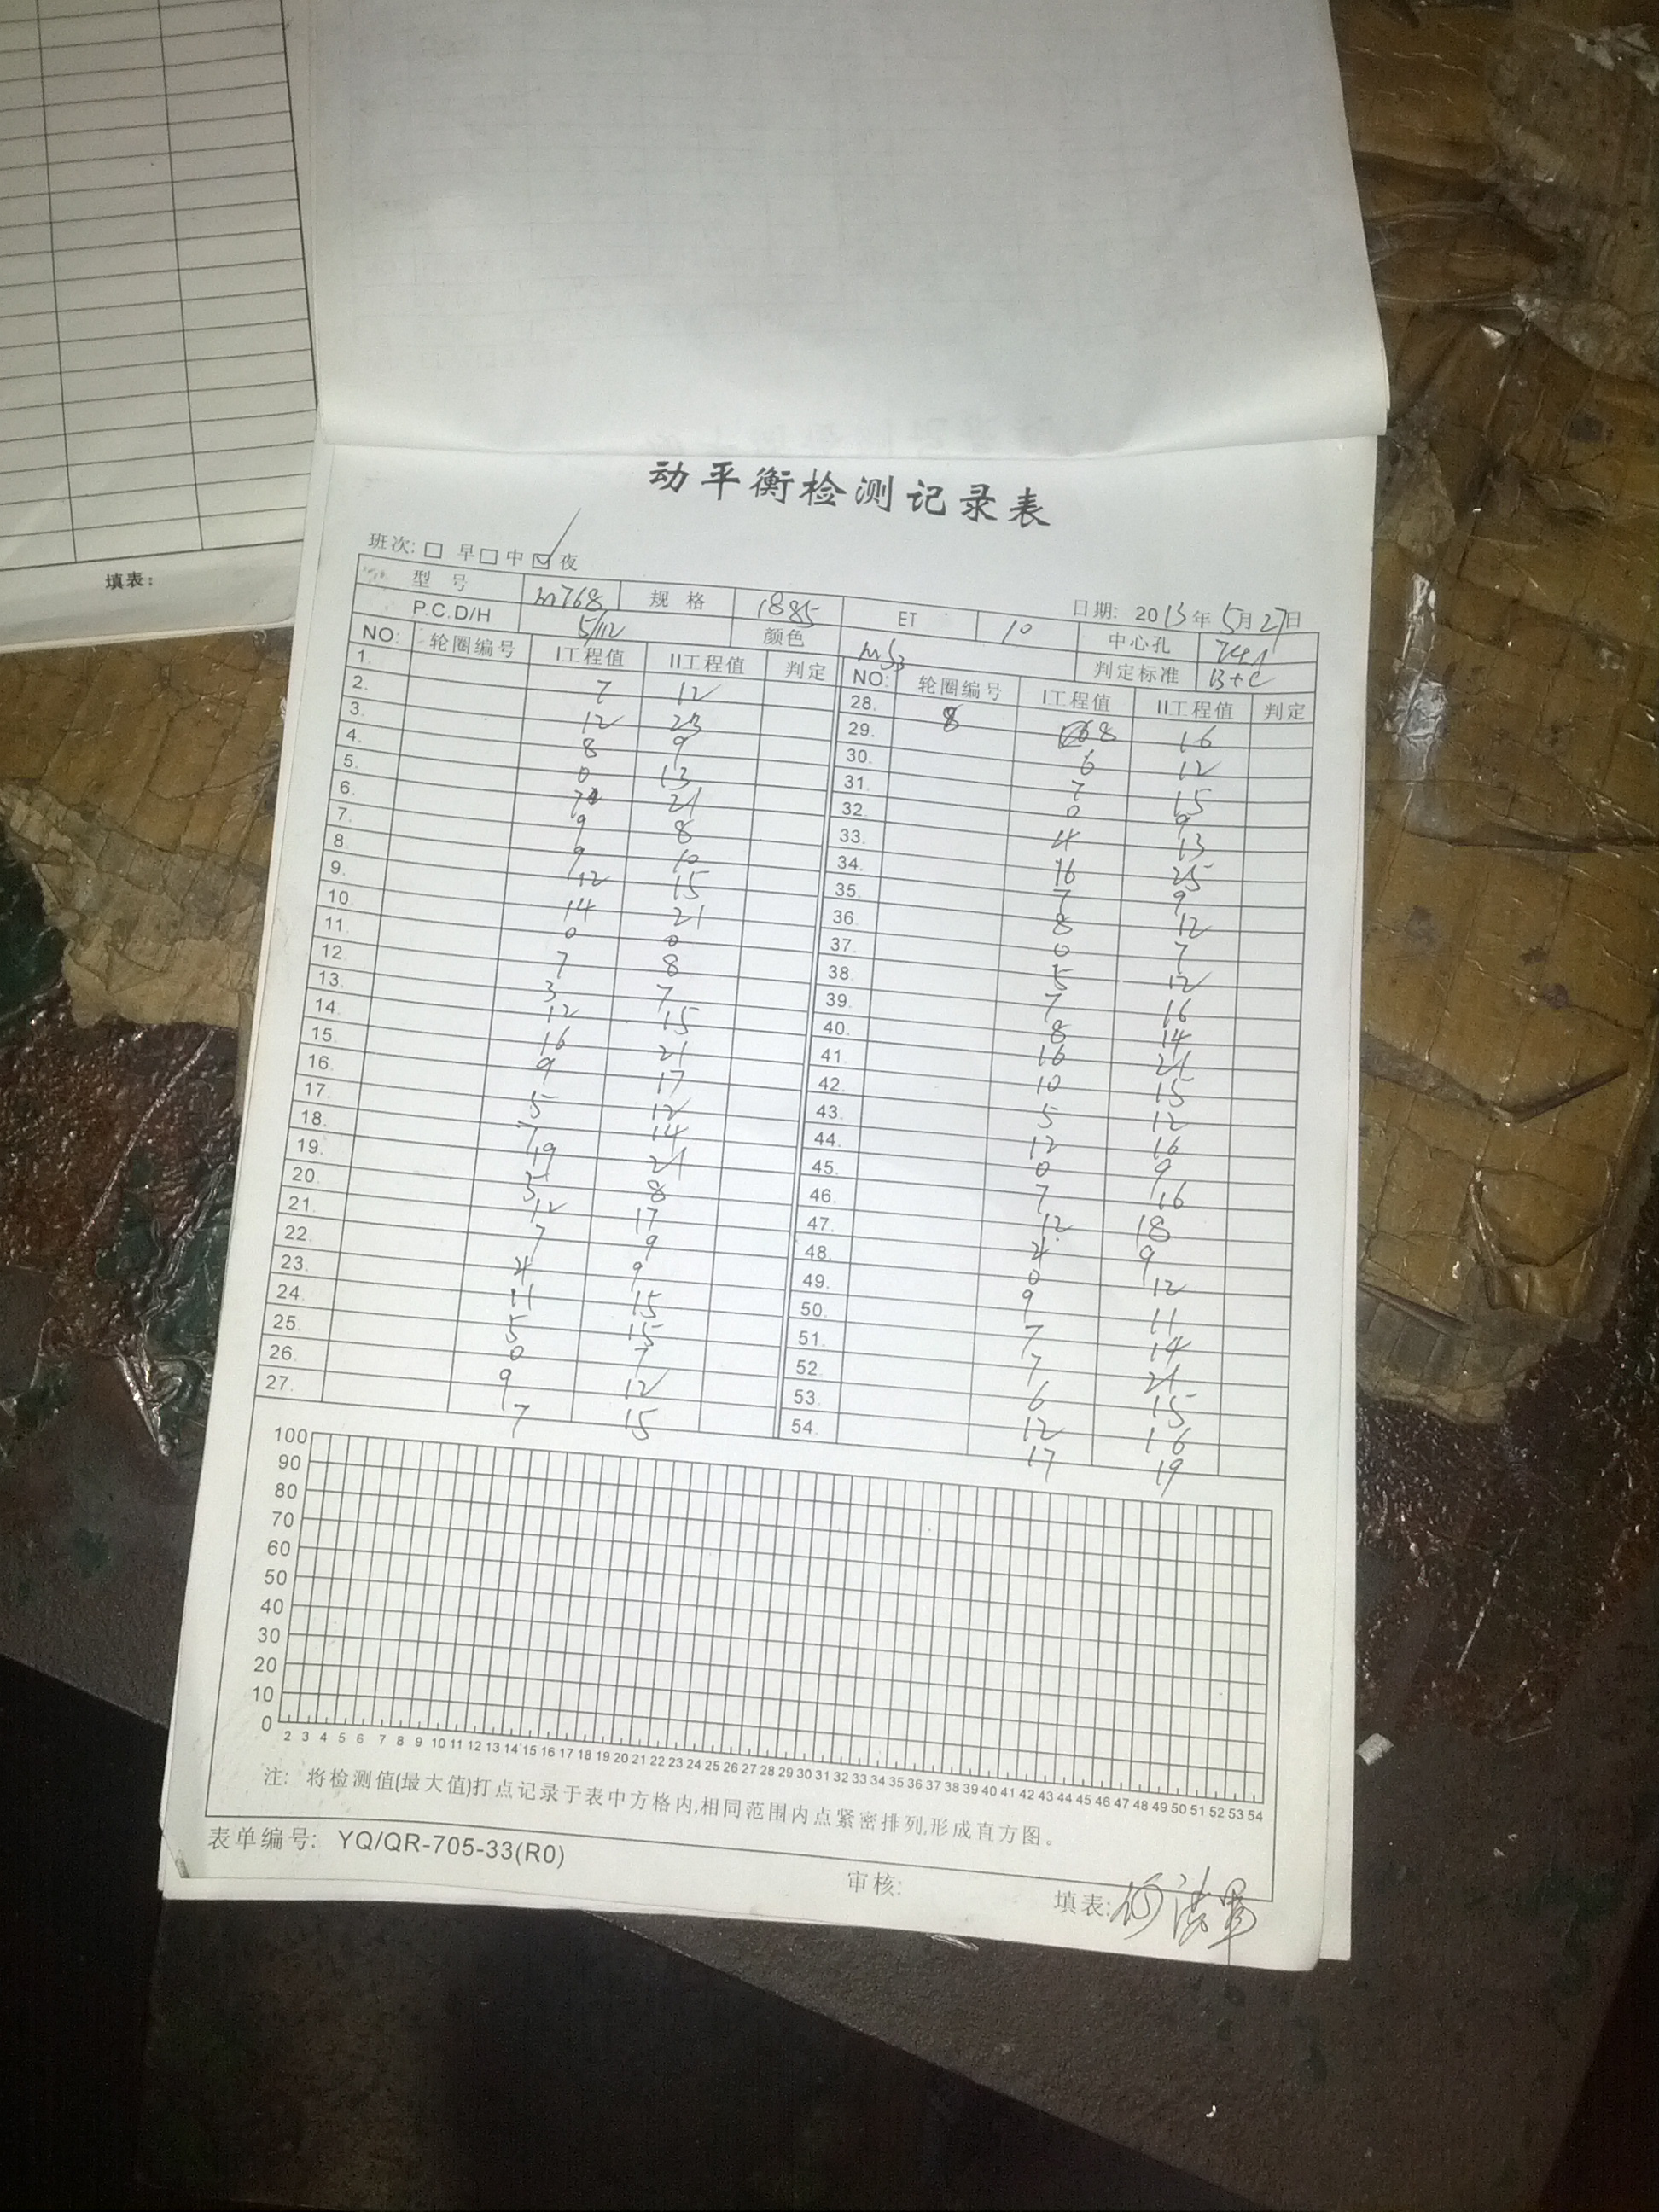 填表:
动平衡检测记录表
班次: □ 早 □ 中 ☑ 夜
日期: 2013年5月27日
型号 m768 规格 1885 ET 10 中心孔
P.C.D/H 5/112 颜色 判定标准 B+C
NO: 轮圈编号 I工程值 II工程值 判定 NO: 轮圈编号 I工程值 II工程值 判定
1. 7 12 28. 8 8 16
2. 12 23 29. 6 12
3. 8 9 30. 7 15
4. 0 13 31. 0 9
5. 7 21 32. 4 13
6. 9 8 33. 16 25
7. 9 10 34. 7 9
8. 12 15 35. 8 12
9. 14 21 36. 0 7
10. 0 0 37. 5 12
11. 7 8 38. 7 16
12. 3 7 39. 8 14
13. 12 15 40. 16 21
14. 16 21 41. 10 15
15. 9 17 42. 5 12
16. 5 12 43. 12 16
17. 7 14 44. 0 9
18. 19 21 45. 7 16
19. 5 8 46. 12 18
20. 12 17 47. 4 9
21. 7 9 48. 0 12
22. 4 9 49. 9 11
23. 11 15 50. 7 14
24. 5 15 51. 7 21
25. 0 7 52. 6 15
26. 9 12 53. 12 16
27. 7 15 54. 17 19
100
90
80
70
60
50
40
30
20
10
0
2 3 4 5 6 7 8 9 10 11 12 13 14 15 16 17 18 19 20 21 22 23 24 25 26 27 28 29 30 31 32 33 34 35 36 37 38 39 40 41 42 43 44 45 46 47 48 49 50 51 52 53 54
注: 将检测值(最大值)打点记录于表中方格内,相同范围内点紧密排列,形成直方图。
表单编号: YQ/QR-705-33(R0)
审核: 填表: